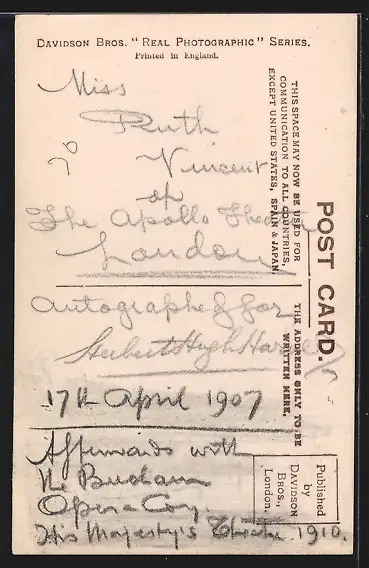 DAVIDSON BROS. "REAL PHOTOGRAPHIC" SERIES.
Printed in England.
Miss
Ruth
Vincent
of
The Apollo Theatre
London
Autographed for
Herbert Hugh
17th April 1907
Afterwards with
the
Opera Coy
His Majesty's Theatre 1910.
THIS SPACE MAY NOW BE USED FOR
COMMUNICATION TO ALL COUNTRIES,
EXCEPT UNITED STATES, SPAIN & JAPAN
POST CARD.
THE ADDRESS ONLY TO BE
WRITTEN HERE.
Published
by
DAVIDSON
BROS.,
London.